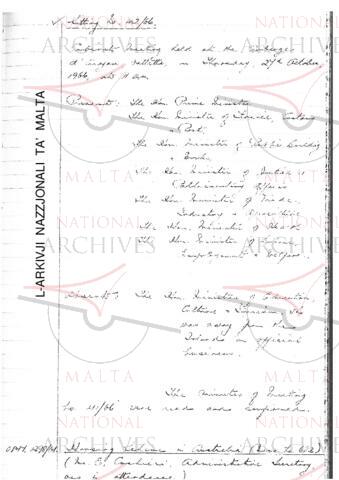 Sitting No. 42/66.
Cabinet Meeting held at the Auberge
d'Aragon Valletta, on Thursday, 27th October
1966 at 11 am
Present: The Hon. Prime Minister
The Hon. Minister of Finance, Customs
Port.
The Hon. Minister of Public Building
& Works
The Hon. Minister of
Affairs
The Hon. Minister of Trade,
Industry & Agriculture
The Hon. Minister of Health
The Hon. Minister of
Employment & Welfare.
Absent: The Hon. Minister of Education,
Culture & Tourism who
was away from the
Island on official
business.
The Minutes of Meeting
No 41/66 were read and confirmed.
in Australia
(Mr. E. Administrative Secretary
was in attendance)
L-ARKIVJI NAZZJONALI TA' MALTA
NATIONAL
ARCHIVES
MALTA